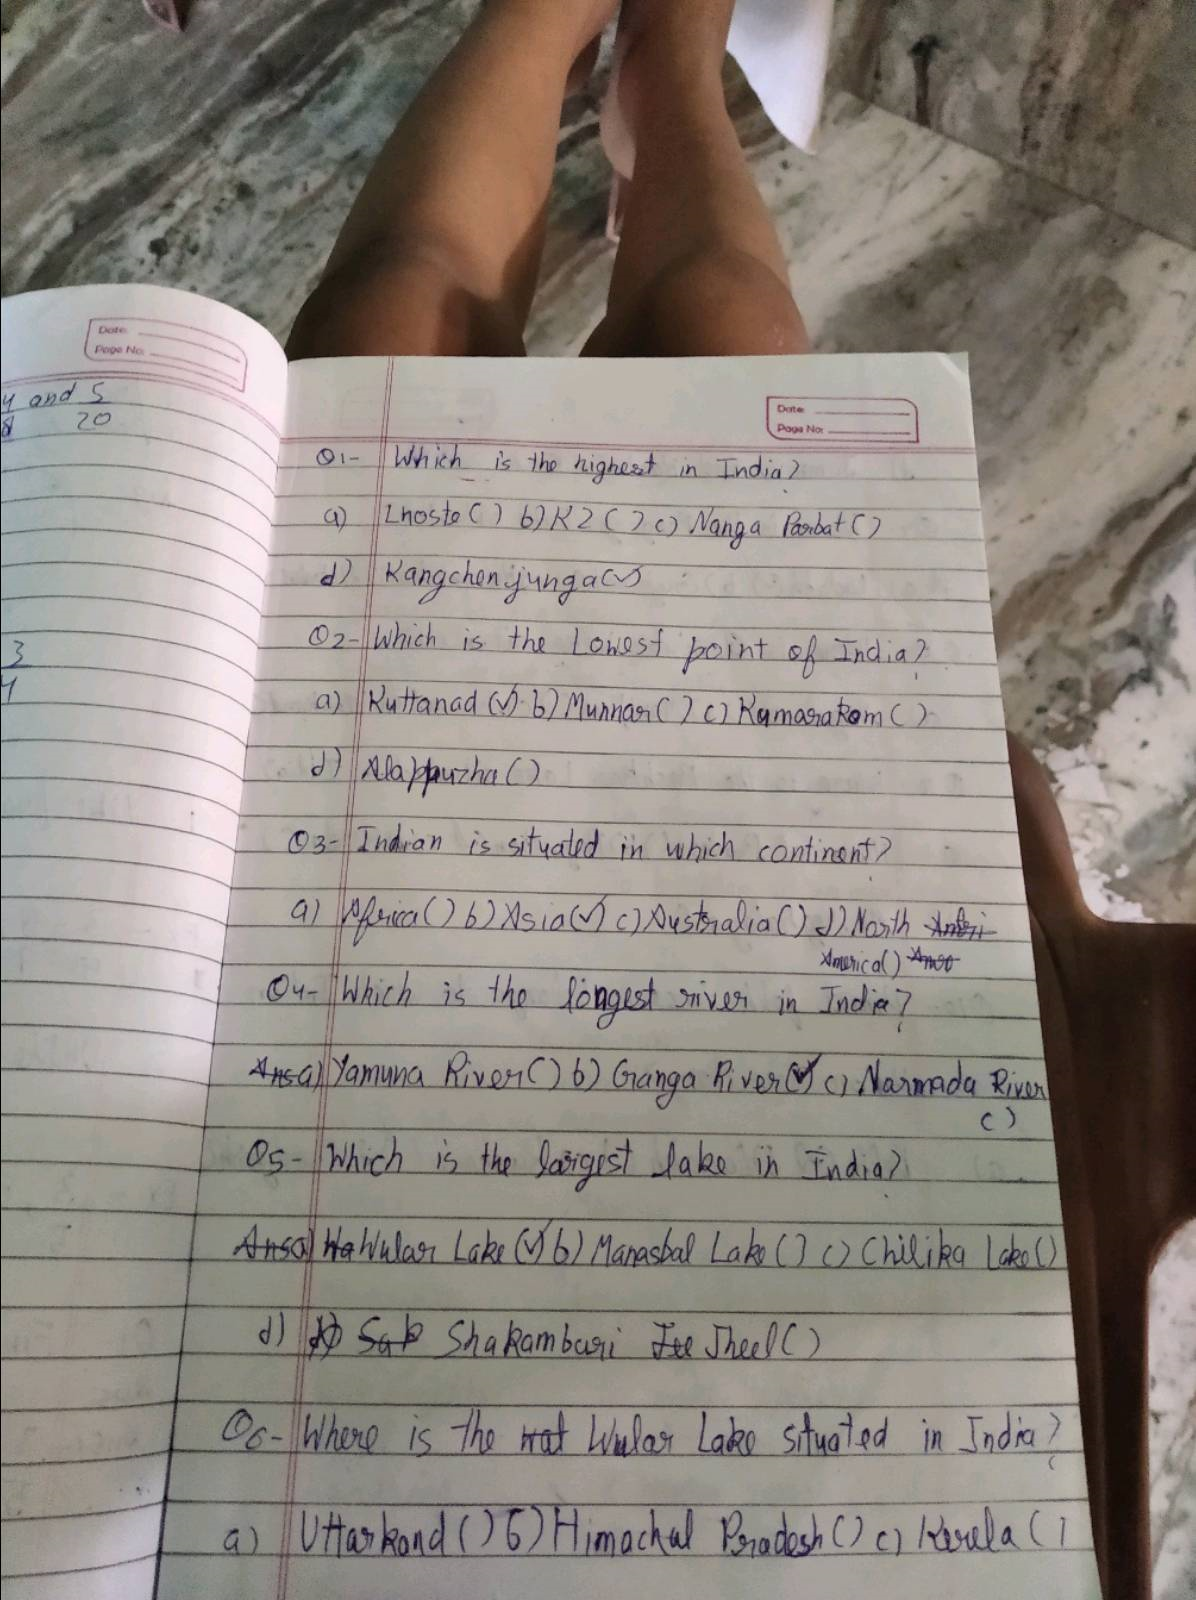 Date
Page No:
4 and 5
20
3
4
Date
Page No:
Q1- Which is the highest in India?
a) Lhoste ( ) b) K2 ( ) c) Nanga Parbat ( )
d) Kangchenjunga (✓)
Q2- Which is the Lowest point of India?
a) Kuttanad (✓) b) Munnar ( ) c) Kumarakom ( )
d) Alappuzha ( )
Q3- Indian is situated in which continent?
a) Africa ( ) b) Asia (✓) c) Australia ( ) d) North
America ( )
Q4- Which is the longest river in India?
Ans a) Yamuna River ( ) b) Ganga River (✓) c) Narmada River
( )
Q5- Which is the largest lake in India?
Ans a) Wa Wular Lake (✓) b) Manasbal Lake ( ) c) Chilika Lake ( )
d) Sab Shakambari Jee Jheel ( )
Q6- Where is the wat Wular Lake situated in India?
a) Uttarkand ( ) b) Himachal Pradesh ( ) c) Kerela ( )